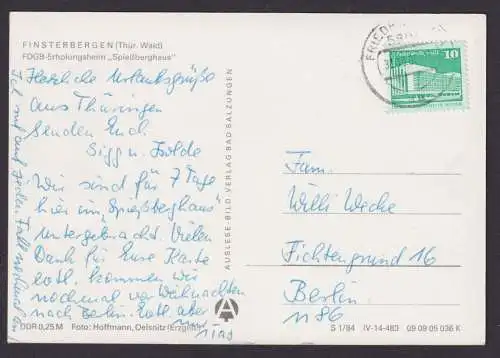 FINSTERBERGEN (Thür. Wald)
FDGB-Erholungsheim „Spießberghaus"
Herzliche Urlaubsgrüße
aus Thüringen
senden Euch
Sigg u. Isolde
Wir sind für 7 Tage
hier im „Spießberghaus"
untergebracht. Vielen
Dank für Eure Karte
evtl. kommen wir
nochmal vor Weihnachten
nach Berlin. evtl. aber
nur 1 Tag
auf jeden Fall nochmal
AUSLESE-BILD-VERLAG BAD SALZUNGEN
FRIED
10
Fam.
Willi Wecke
Fichtengrund 16
Berlin
1186
DDR 0,25 M Foto: Hoffmann, Oelsnitz (Erzgeb.)
A
S 1/84 IV-14-483 09 09 05 036 K